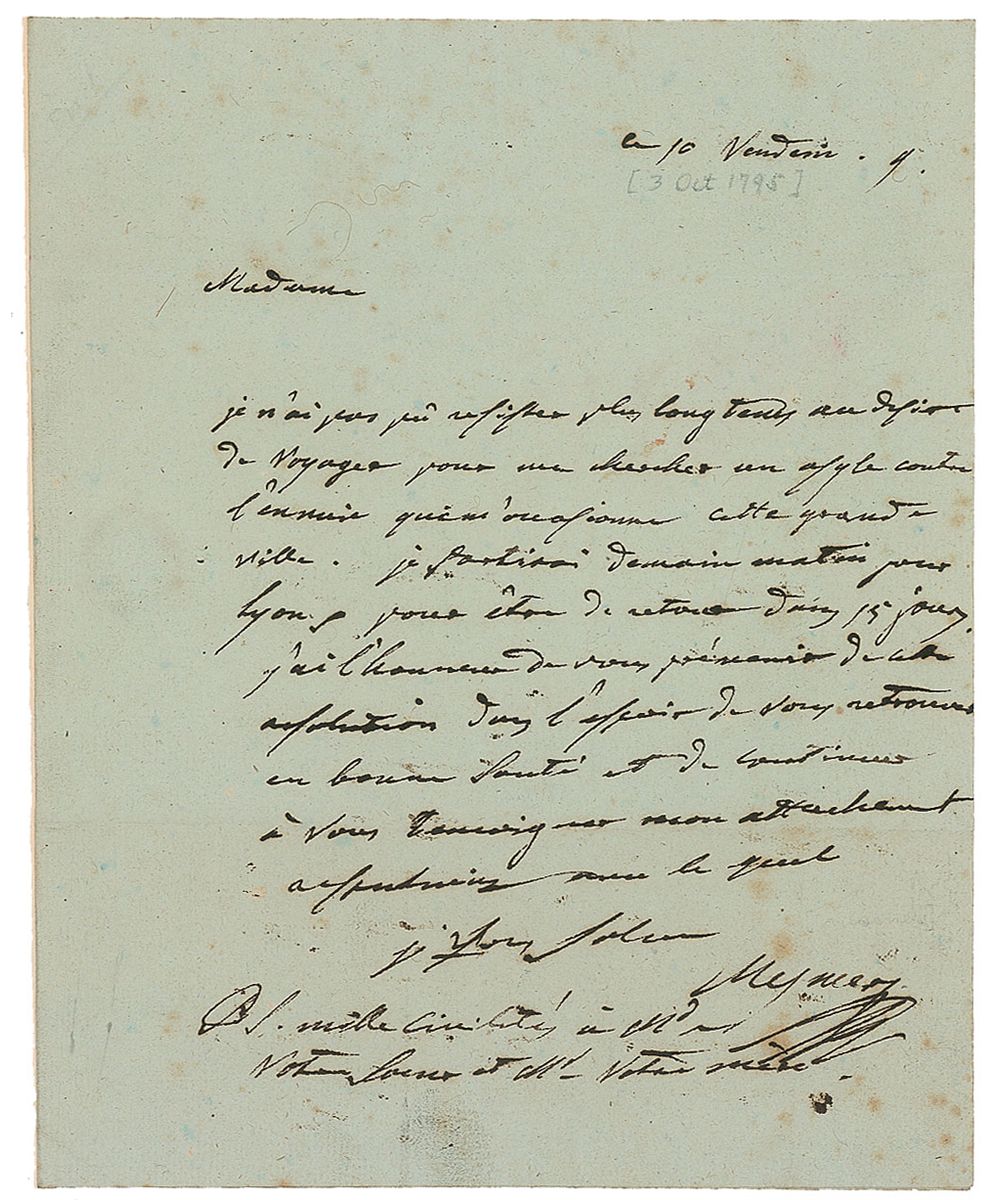 le 10 Vendem. 9.
[3 Oct 1795]
Madame
je n'ai pas pû resister plus longtems au desire
de voyager pour me chercher un asyle contre
l'ennuie qui m'occasionne cette grande
ville. je partirai demain matin pour
Lyon, pour être de retour dans 15 jours,
j'ai l'honneur de vous prévenir de cette
resolution dans l'espoir de vous retrouver
en bonne santé et de continuer
à vous temoigner mon attachement
respectueux avec le quel
je vous salue
Mesmer
PS. mille civilités à Md
votre soeur et Md votre mère.